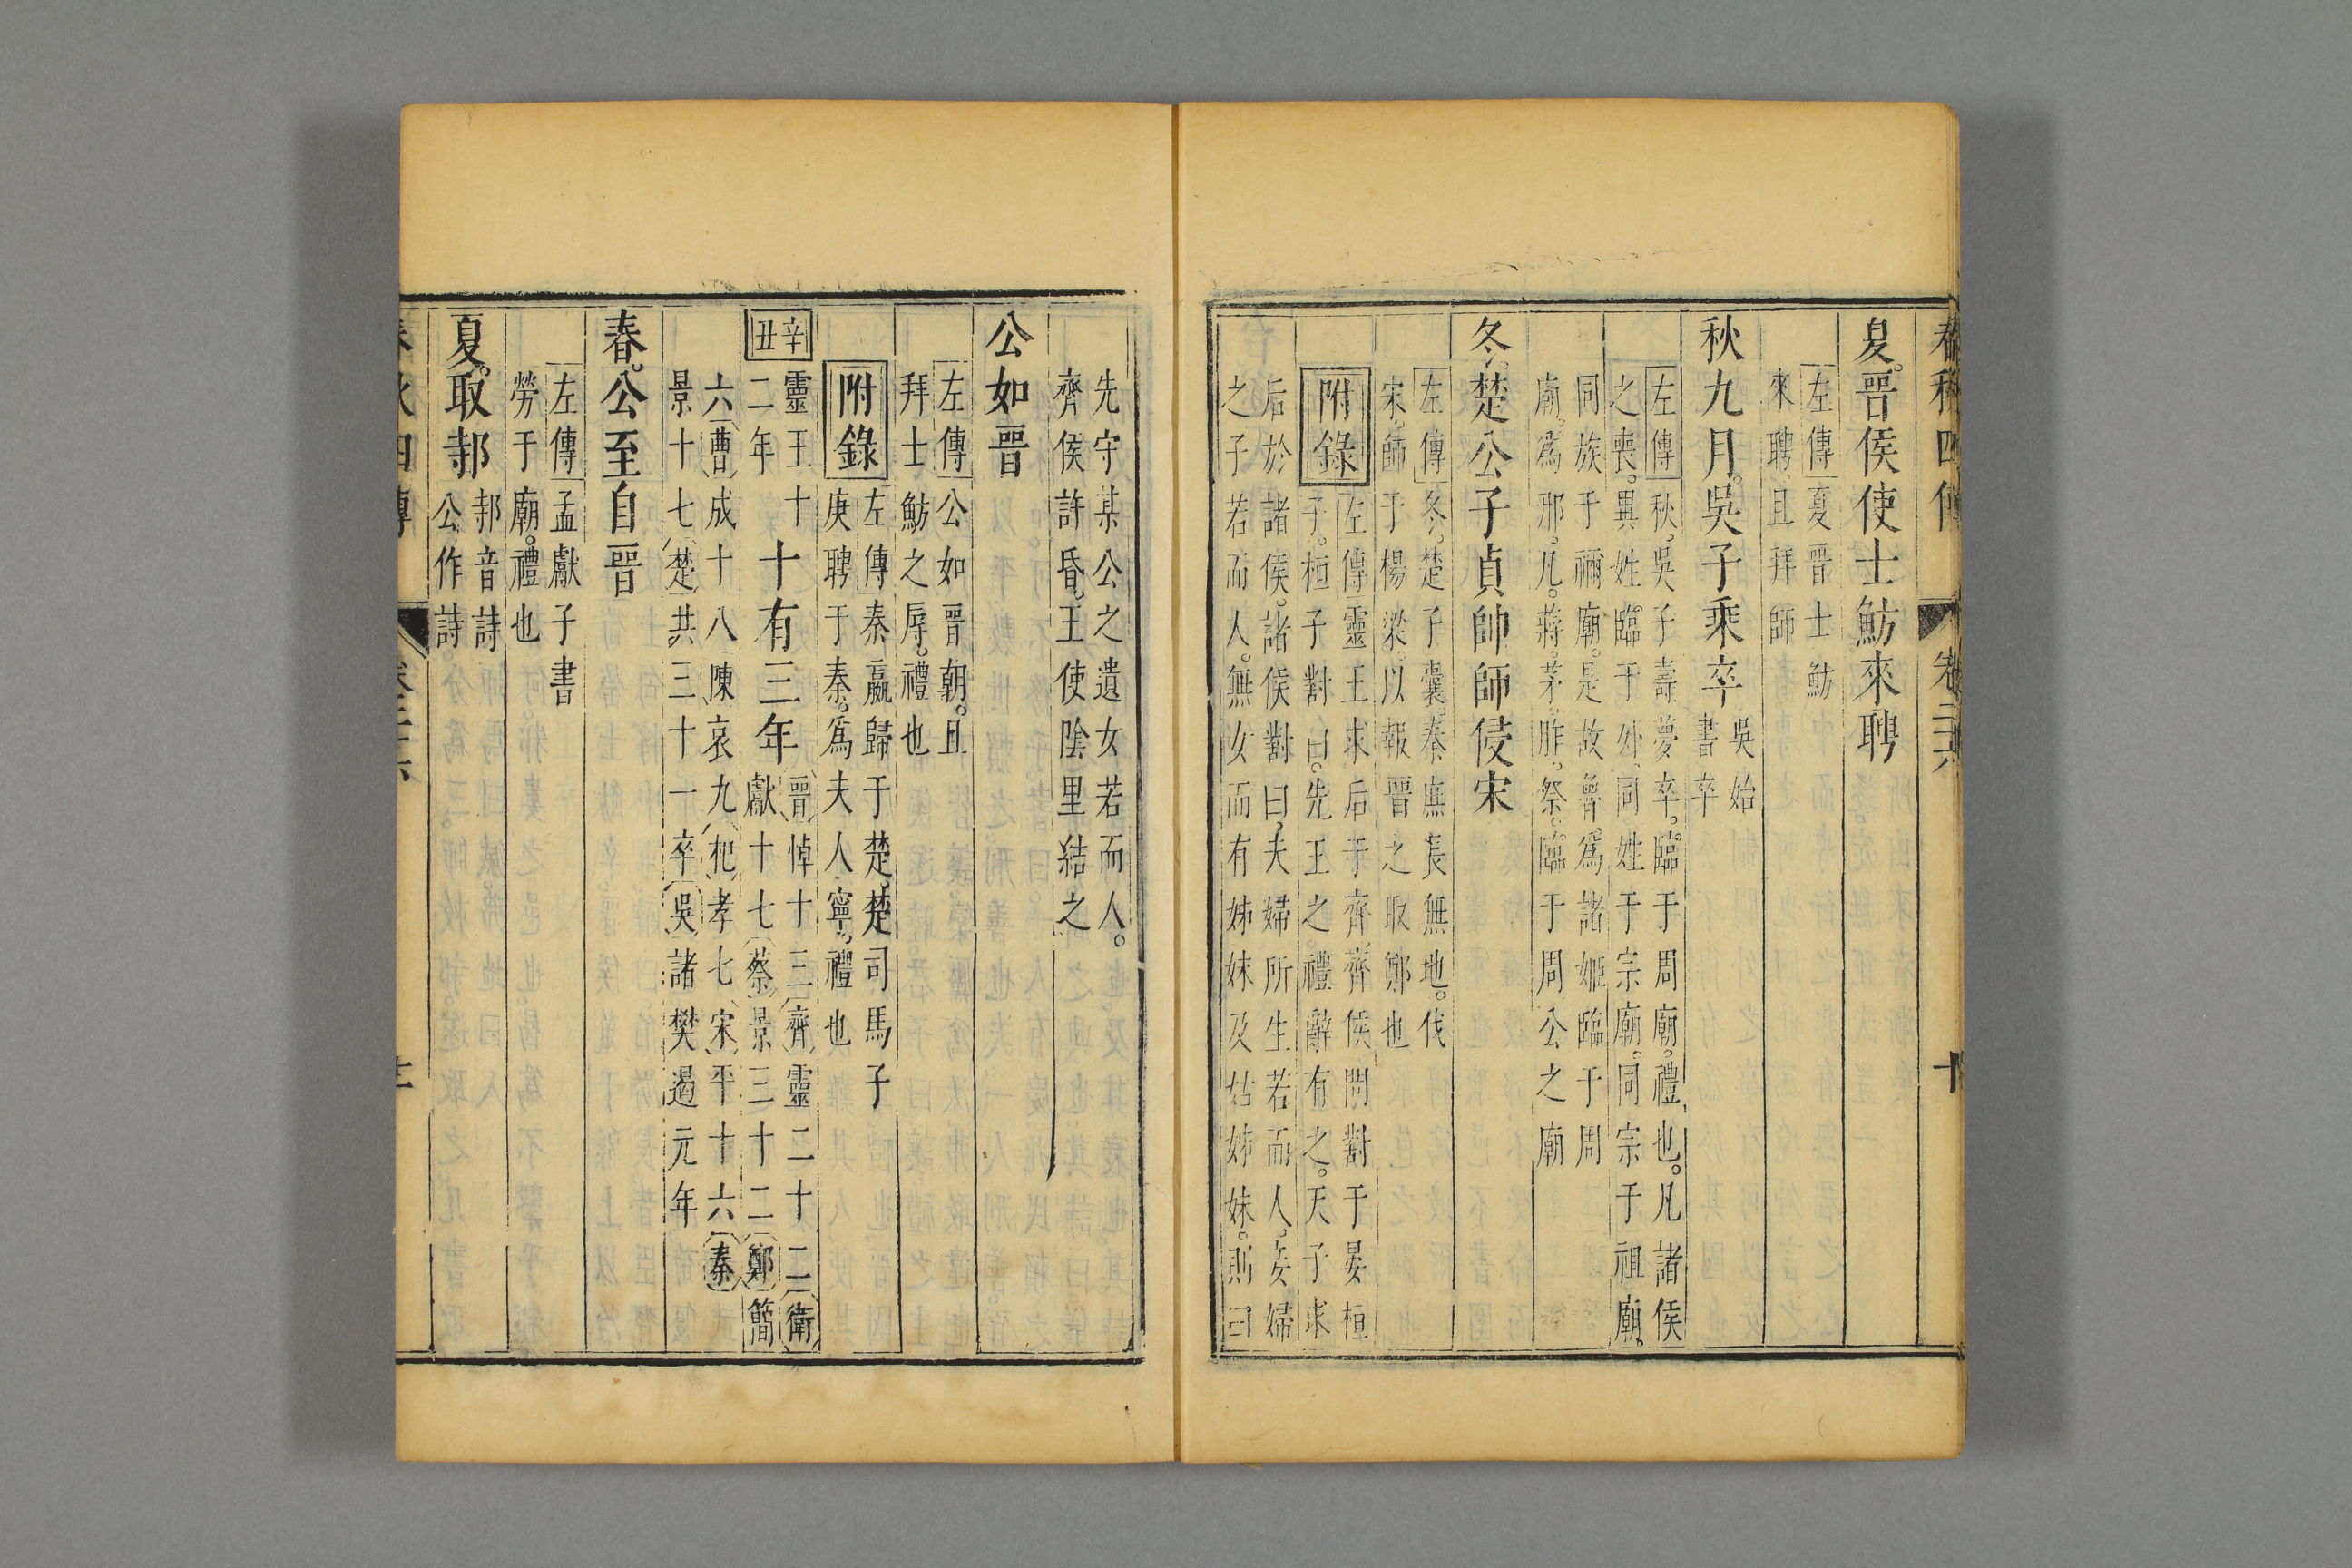 春秋四傳 卷二十六 十
夏。晉侯使士魴來聘
左傳夏晉士魴
來聘且拜師
秋九月。吳子乘卒
吳始
書卒
左傳秋，吳子壽夢卒。臨于周廟。禮也。凡諸侯
之喪。異姓臨于外，同姓于宗廟。同宗于祖廟。
同族于禰廟。是故魯爲諸姬臨于周
廟。爲邢。凡。蔣。茅。胙。祭。臨于周公之廟
冬，楚公子貞帥師侵宋
左傳冬，楚子囊。秦庶長無地。伐
宋，師于楊梁。以報晉之取鄭也
附錄
左傳靈王求后于齊，齊侯問對于晏桓
子。桓子對曰。先王之禮辭有之。天子求
后於諸侯。諸侯對曰，夫婦所生若而人，妾婦
之子若而人。無女而有姊妹及姑姊妹。則曰
先守某公之遺女若而人。
齊侯許昏。王使陰里結之
公如晉
左傳公如晉朝。且
拜士魴之辱。禮也
附錄
左傳秦嬴歸于楚，楚司馬子
庚聘于秦。爲夫人寧。禮也
辛丑
靈王十
二年
十有三年
晉悼十三齊靈二十二衛
獻十七蔡景三十二鄭簡
六曹成十八陳哀九杞孝七宋平十六秦
景十七楚共三十一卒吳諸樊遏元年
春。公至自晉
左傳孟獻子書
勞于廟。禮也
夏。取邿
邿音詩
公作詩
春秋四傳 卷二十六 十一